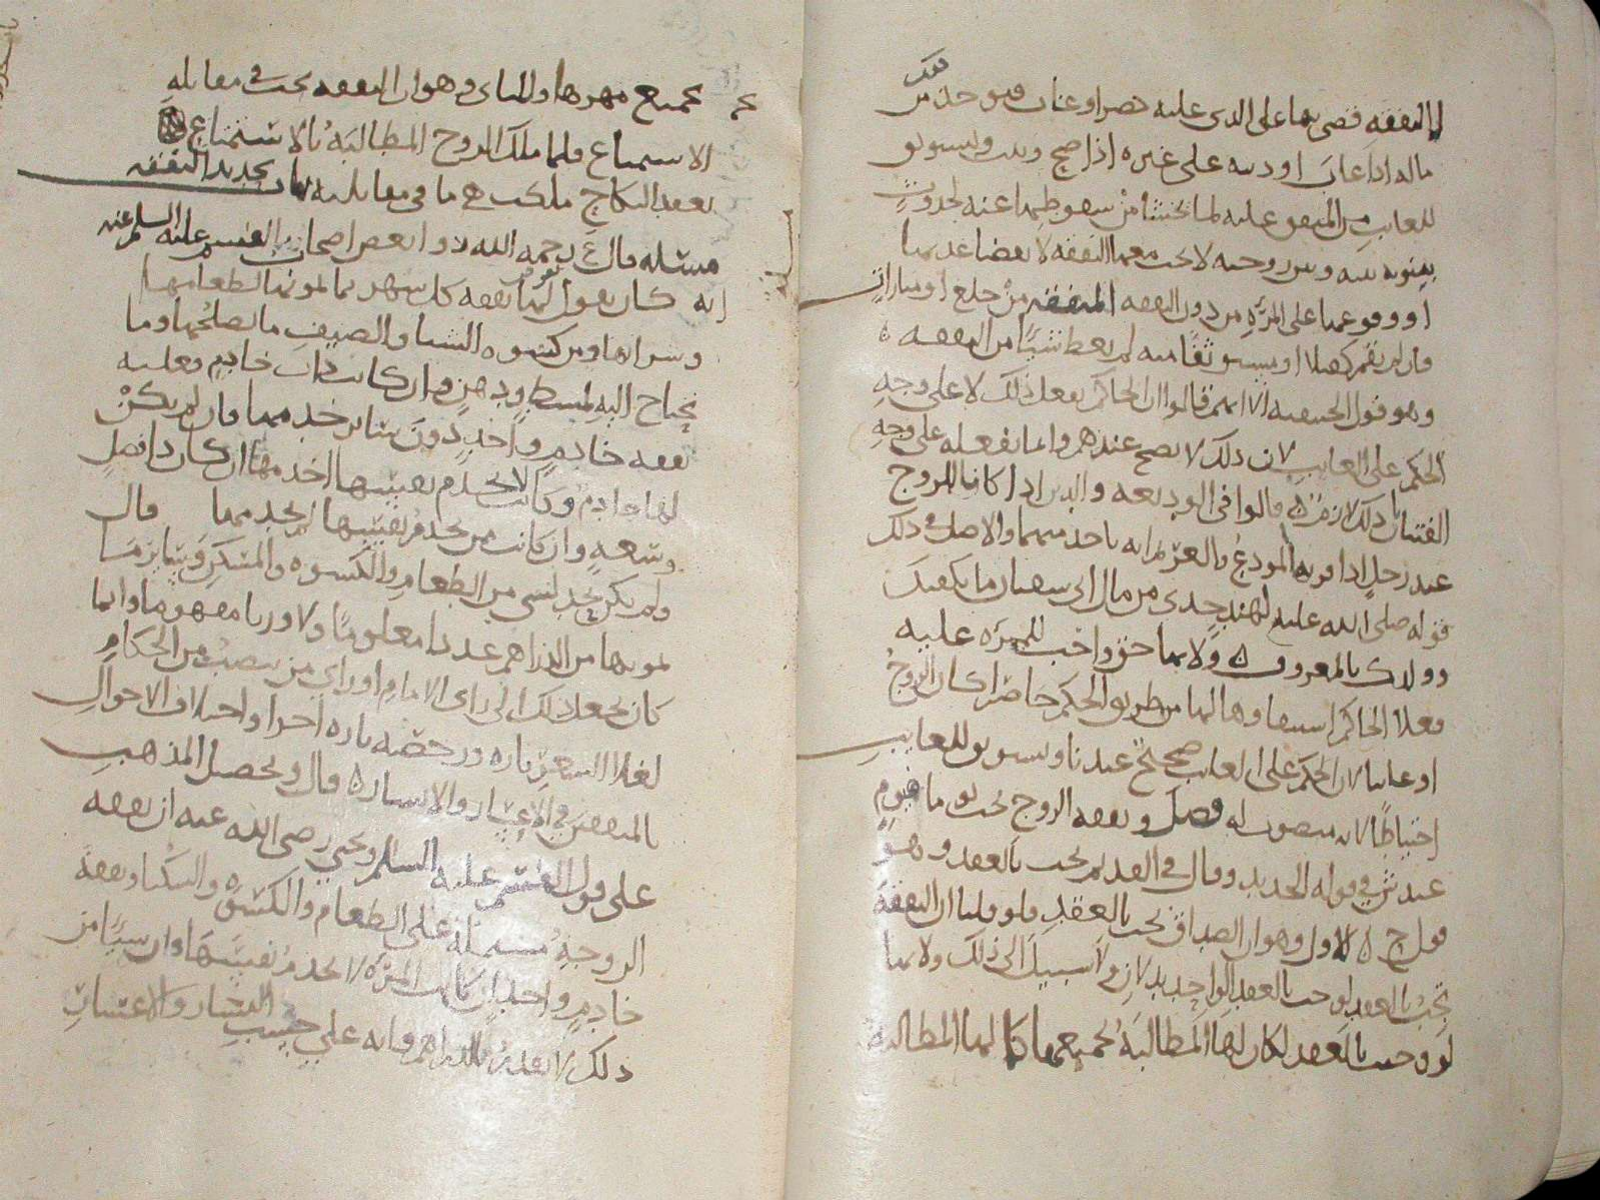 بالنفقه قضى بها على الذى عليه حضر او غاب فيوخذ من
ماله اذا غاب او دينه على غيره اذا صح ويستوثق
للغايب من المنفق عليه لما يخشا من سقوطها عنه لحدوث
بينونه بينه وبين زوجته لا تجب معها النفقه
او وقوعها على المرٔه من دون النفقه من خلع او مبارات
فان لم تقم كفيلا او يستوثقا منه لم يعط شيًا من النفقه ه
وهو قول الحنفيه الا انهم قالوا ان الحاكم يفعل ذلك لا على وجه
الحكم على الغايب لان ذلك لا يصح عندهم وانما يفعله على وجه
الفتيا ه قالوا فى الوديعه والدين اذا كانا للزوج
عند رجل اذا اقر به المودع بالغريم انه ياخذ منهما والاصل فى ذلك
قوله صلى الله عليه لهند خذى من مال ابى سفيان ما يكفيك
وولدك بالمعروف ه ولانها حق واجب للمرٔه عليه
فعلا الحاكم استيفاوها لها من طريق الحكم حاضرا كان الزوج
او غايبا لان الحكم على الغايب صحيح عندنا ويستوثق للغايب
احتياطًا لانه منصوب له فصل ونفقه الزوج تجب يوما فيوم
عند ش فى قوله الجديد وقال فى القديم تجب بالعقد وهو
قول ح ه الاول وهو ان الصداق تجب بالعقد فلو قلنا ان النفقه
تجب بالعقد لوجب بالعقد الواحد بدلان ولا سبيل الى ذلك ولانها
لو وجبت بالعقد لكان لها المطالبه بجميعها كما لها المطالبه
بجميع مهرها والثانى وهو ان النفقه تجب فى مقابله
الاستمتاع فلما ملك الزوج المطالبه بالاستمتاع
بعقد النكاح ملكت هى ما فى مقابلته باب تحديد النفقه
مسئله قال ع رحمه الله روا بعض اصحاب القسم عليه السلم عنه
انه كان يقول يفرض لها نفقه كل شهر بما لمونها لطعامها
وشرابها ومن كسوه الشتا والصيف ما يصلحها وما
تحتاج اليه لمشط ودهن وان كانت ذات خادم فعليه
نفقه خادم واحد دون سائر خدمها فان لم يكن
لها خادم وكانت لا تخدم نفسها اخدمها ان كان ذا فضل
وسعه وان كانت ممن تخدم نفسها لم يخدمها قال
ولم يكن يحد لشى من الطعام والكسوه والمسكن وسائر ما
لمونها من الدراهم عددا معلومًا ولا وزنا مفهوما وانما
كان يجعل ذلك الى راى الامام او راى من ينصب من الحكام
لغلا السعر تاره ورخصه تاره اخرا واختلاف الاحوال
بالمنفقين فى الاعسار والايسار ه قال وتحصيل المذهب
على قول القسم عليه السلم ويحيى رضى الله عنه ان نفقه
الزوجه مشتمله على الطعام والكسوه والسكنا ونفقه
خادم واحد ان كانت المرٔه لا تخدم نفسها وان شيًا من
ذلك لا يقدر بالدراهم فانه على حسب اليسار والاعسار